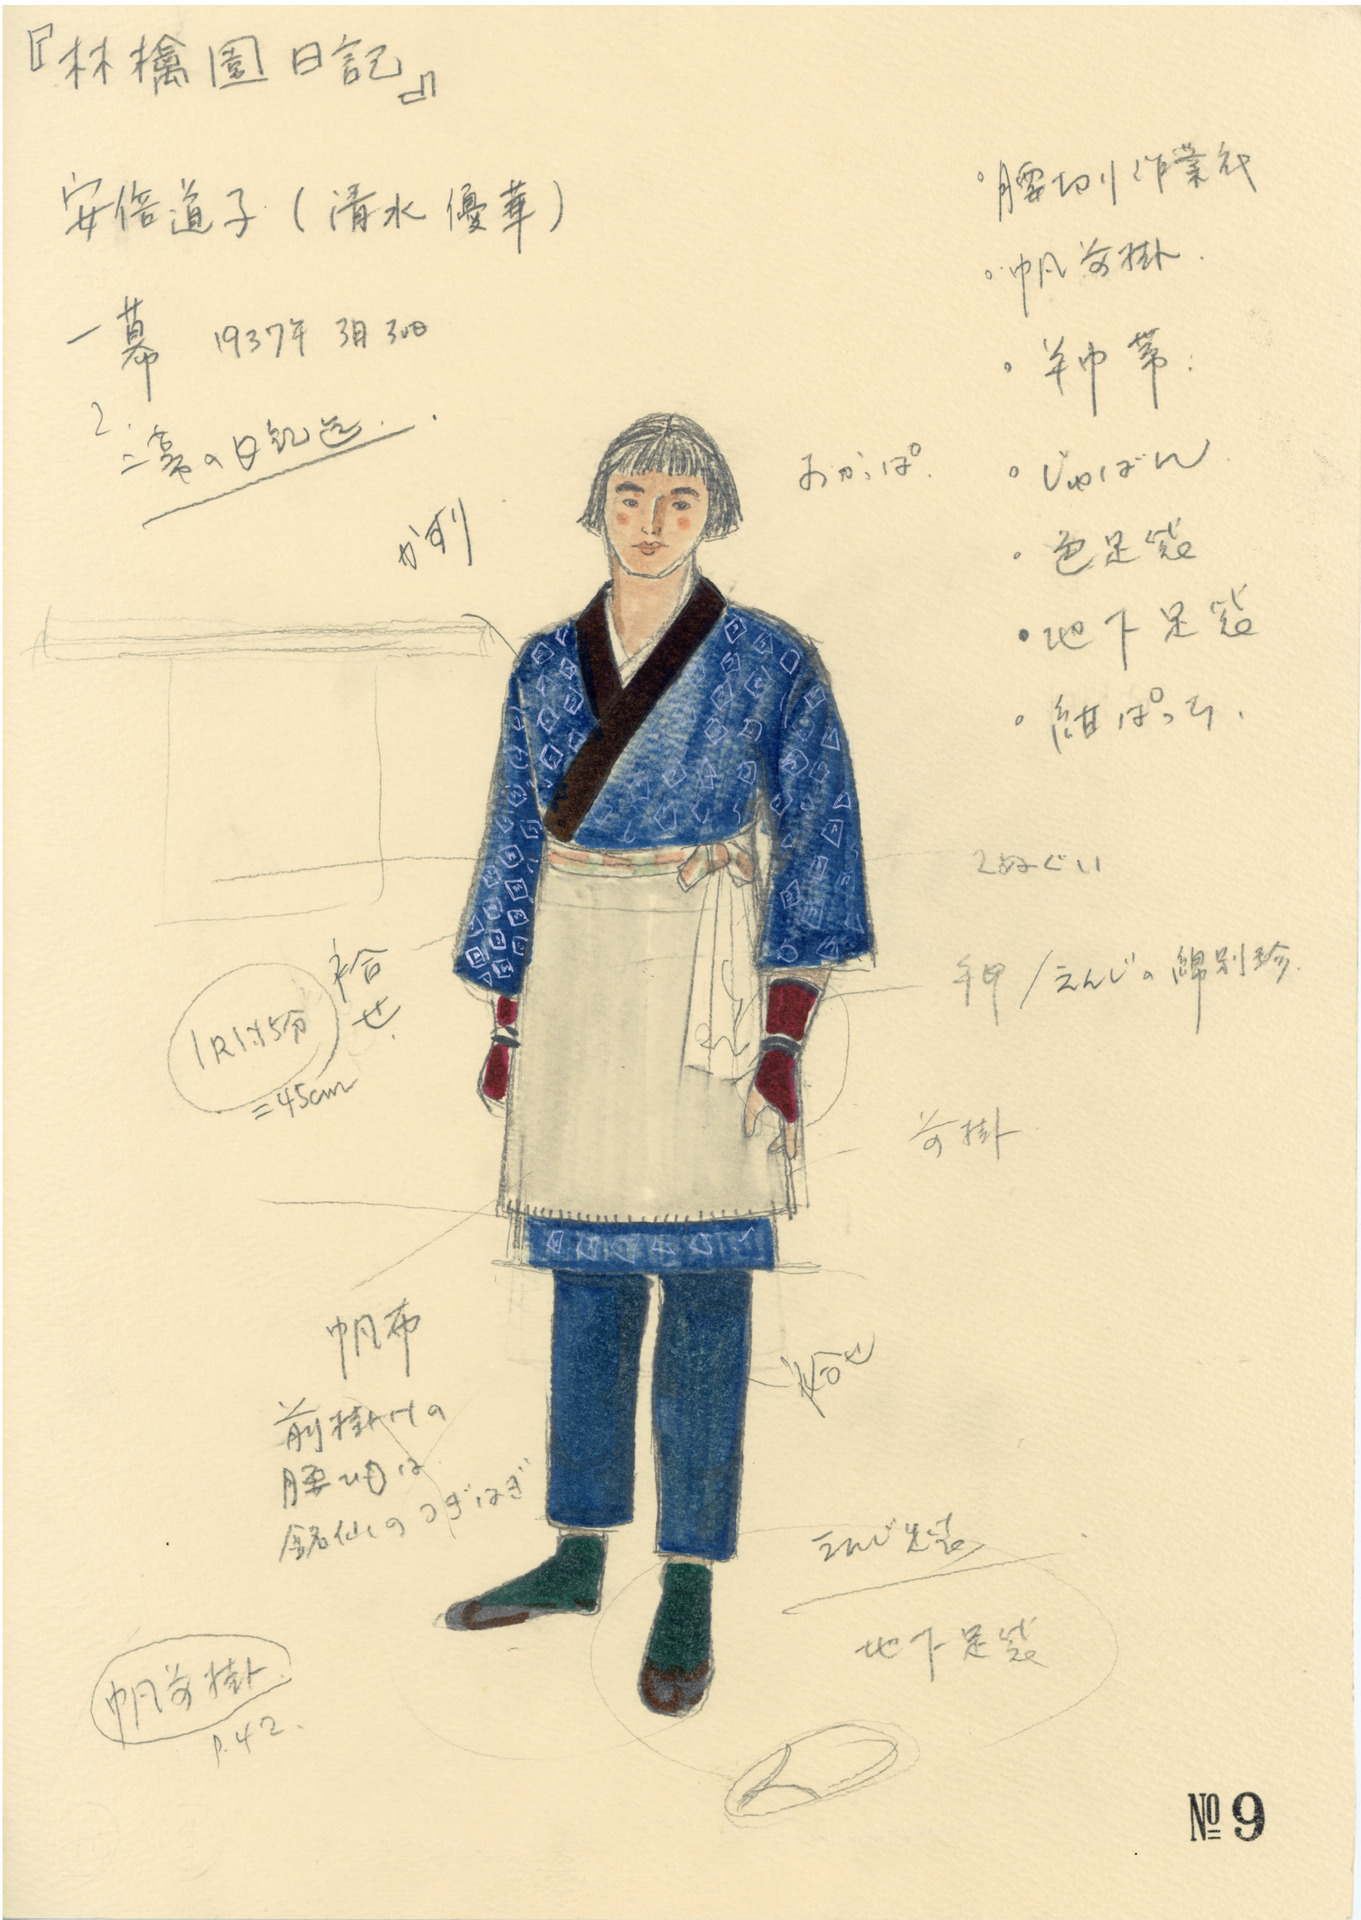 『林檎園日記』
安倍道子(清水優華)
一幕 1937年3月30日
2.
二幕の日記迄.
かすり
おかっぱ.
・腰切り作業衣
・帆前掛.
・半巾帯.
・じゅばん
・色足袋
・地下足袋
・紺ぱっち.
てぬぐい
手甲/えんじの綿別珍.
袷せ.
=45cm
前掛
帆布
前掛けの
腰ひもは
銘仙のつぎはぎ
袷せ
えんじ足袋
地下足袋
帆前掛.
P.42.
№9